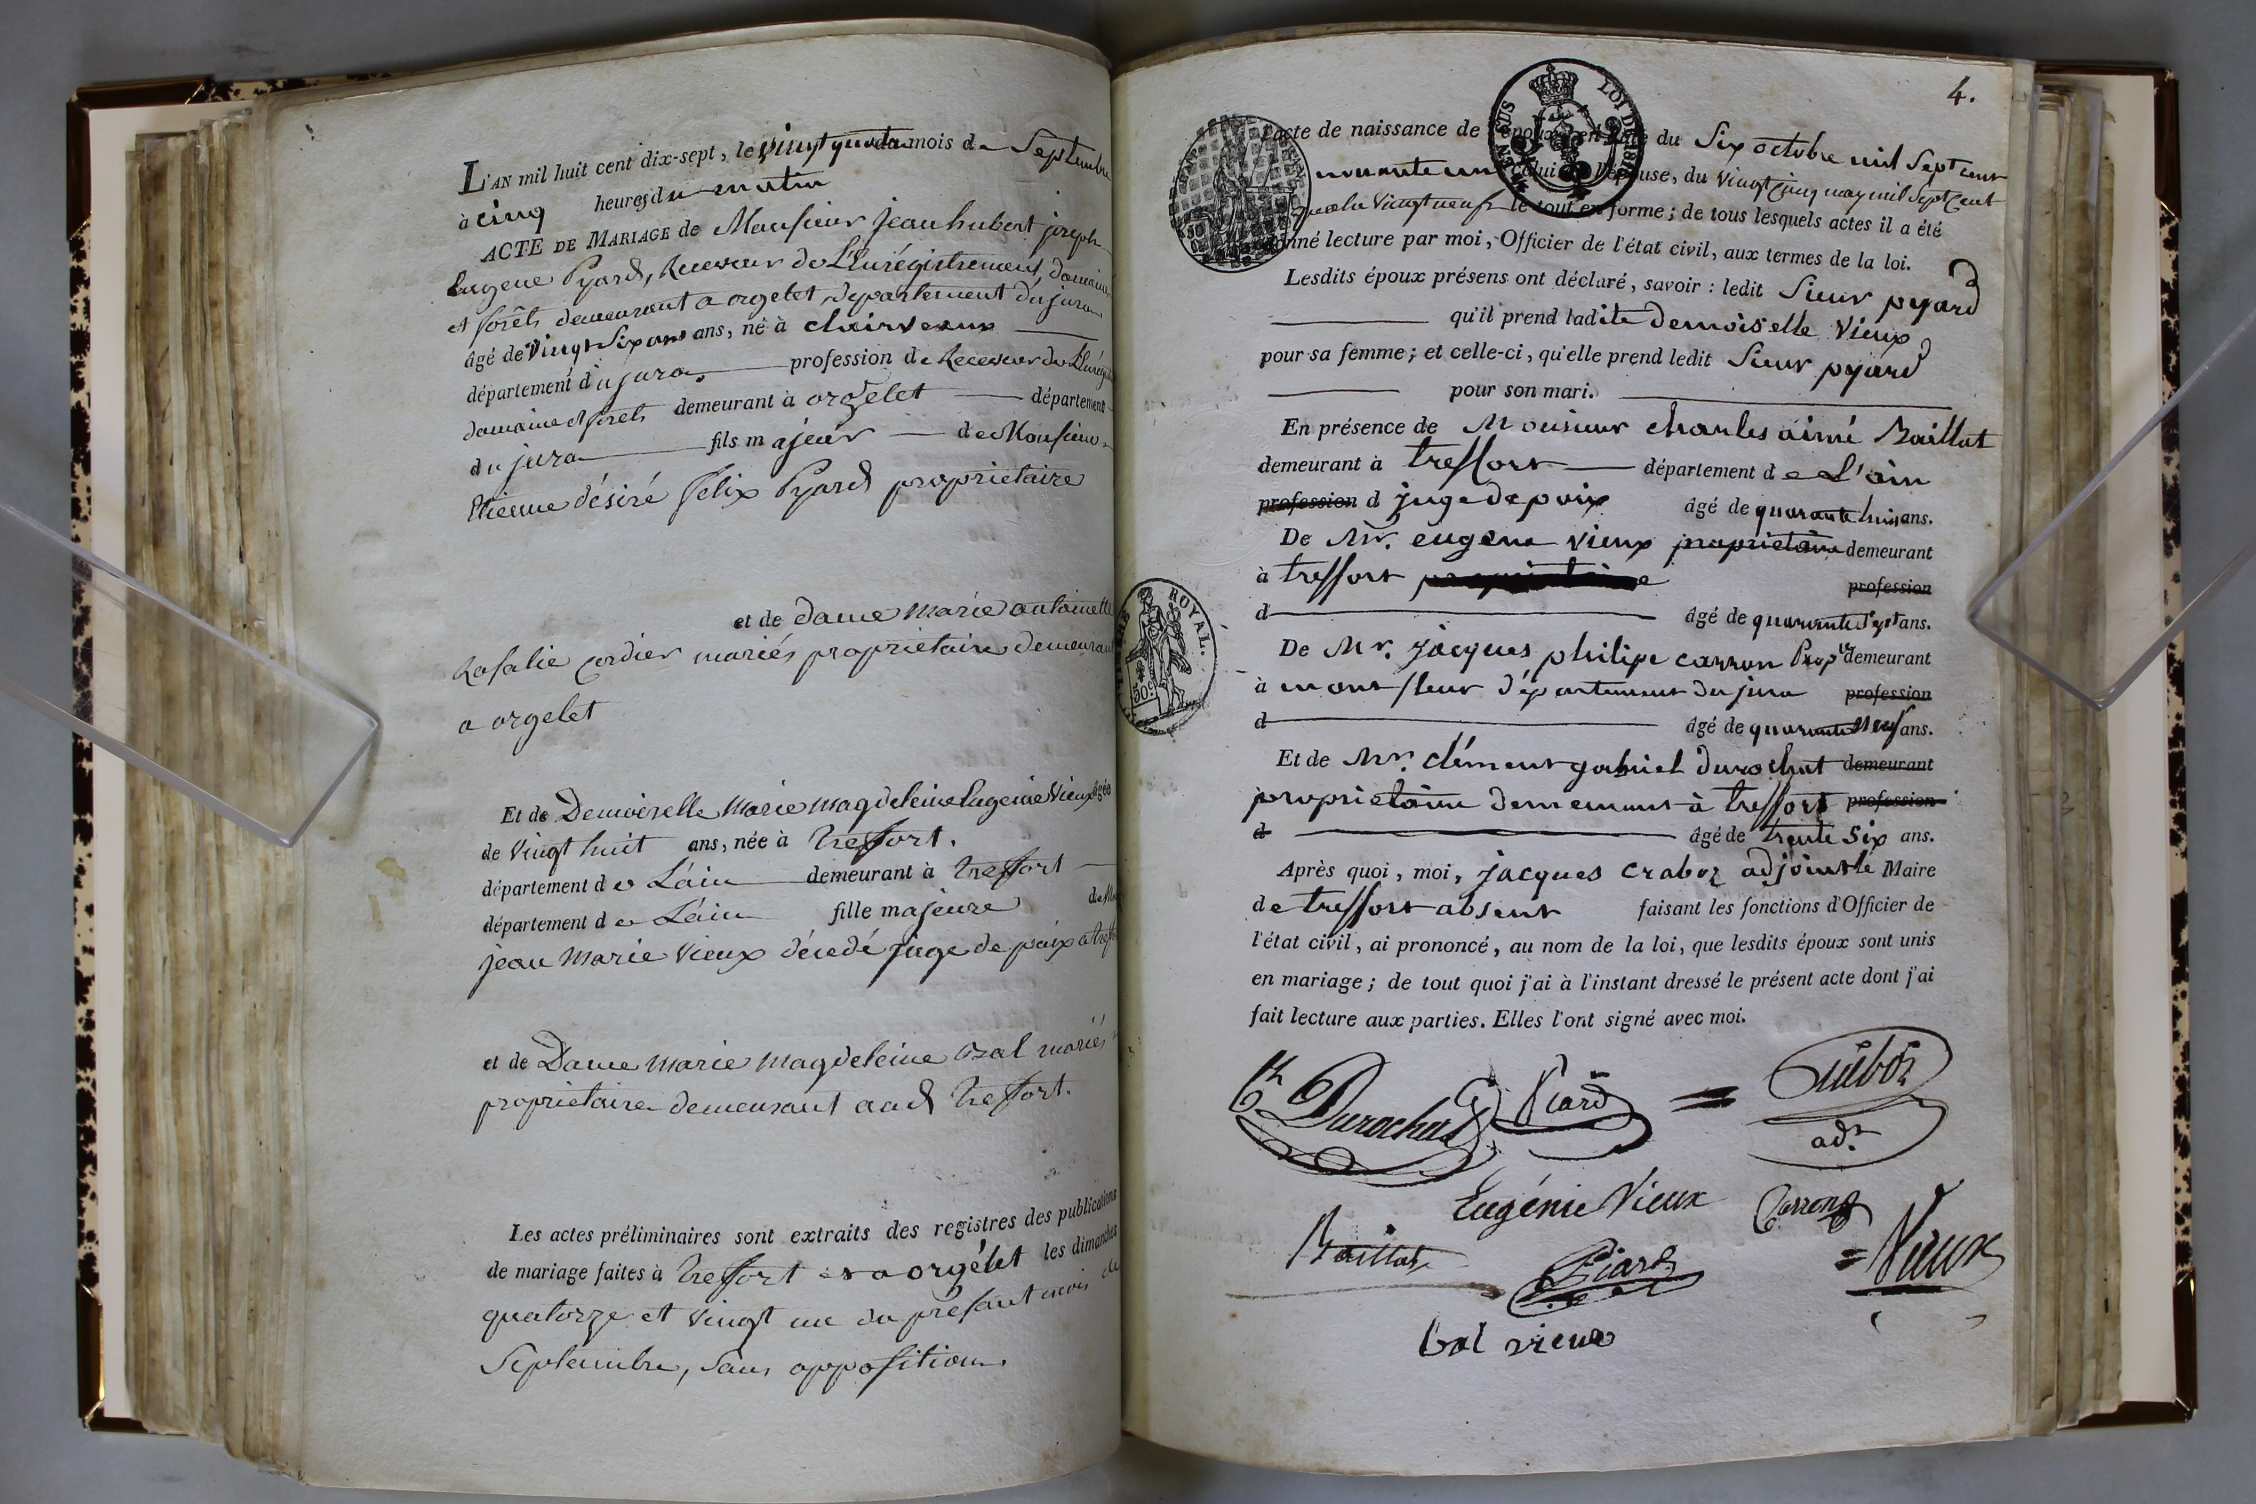 L'AN mil huit cent dix-sept, le vingt quatre du mois de Septembre
à cinq heures du matin
ACTE DE MARIAGE de Monsieur jean hubert joseph
Eugene Pyard, Receveur de L'Enrégistrement, domaines
et forêts demeurant a orgelet, département du jura
âgé de vingt Six ans ans, né à clairveaux
département du jura profession de Receveur de L'Enrég
domaine et forets demeurant à orgelet département
du jura fils majeur de Monsieur
Etienne désiré felix Pyard proprietaire
et de dame marie antoinette
Rosalie Cordier mariés proprietaire demeurant
a orgelet
Et de Demoiselle Marie magdeleine Eugenie Vieux âgée
de vingt huit ans, née à Treffort.
département de L'ain demeurant à Treffort
département de L'ain fille majeure de
jean Marie Vieux décedé juge de paix a
et de Dame Marie Magdeleine Bal mariés
proprietaire demeurant aud Treffort.
Les actes préliminaires sont extraits des registres des publications
de mariage faites à Treffort et a orgelet les dimanches
quatorze et vingt un du présent mois de
Septembre, sans opposition.
4.
TIMBRE ROYAL.
50 c.
EN SUS LOI DE 1816
l'acte de naissance de l'époux, en date du Six octobre mil Sept cent
nonante un celui de l'épouse, du vingt cinq may mil Sept Cent
quatre vingt neuf le tout en forme; de tous lesquels actes il a été
donné lecture par moi, Officier de l'état civil, aux termes de la loi.
Lesdits époux présens ont déclaré, savoir : ledit Sieur pyard
qu'il prend ladite demoiselle Vieux
pour sa femme; et celle-ci, qu'elle prend ledit Sieur pyard
pour son mari.
En présence de Monsieur charles aimé Baillat
demeurant à treffort département de L'ain
profession d juge de paix âgé de quarante huit ans.
De Mr. eugene vieux proprietaire demeurant
à treffort profession
d âgé de quarante Sept ans.
De Mr. jacques philipe carron Propre demeurant
à mont fleur département du jura profession
d âgé de quarante Neuf ans.
Et de Mr. clément gabriel Durochat demeurant
proprietaire demeurant à treffort profession
d âgé de trente Six ans.
Après quoi, moi, jacques craboz adjoint le Maire
de treffort absent faisant les fonctions d'Officier de
l'état civil, ai prononcé, au nom de la loi, que lesdits époux sont unis
en mariage; de tout quoi j'ai à l'instant dressé le présent acte dont j'ai
fait lecture aux parties. Elles l'ont signé avec moi.
Durochat Piard
adt.
Eugénie Vieux Carron
Baillat Piard Vieux
bal vieux